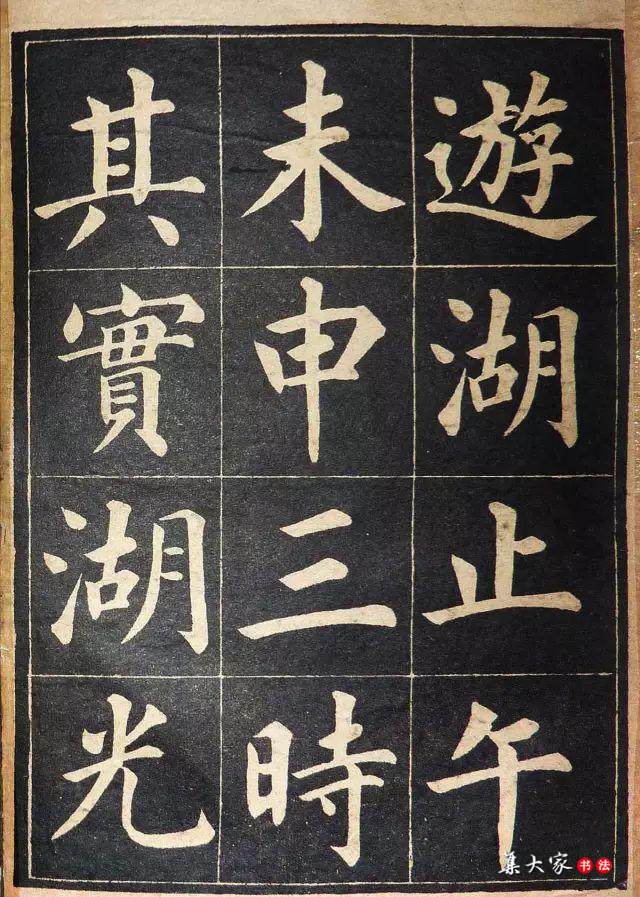 遊湖止午
未申三時
其實湖光
集大家书法